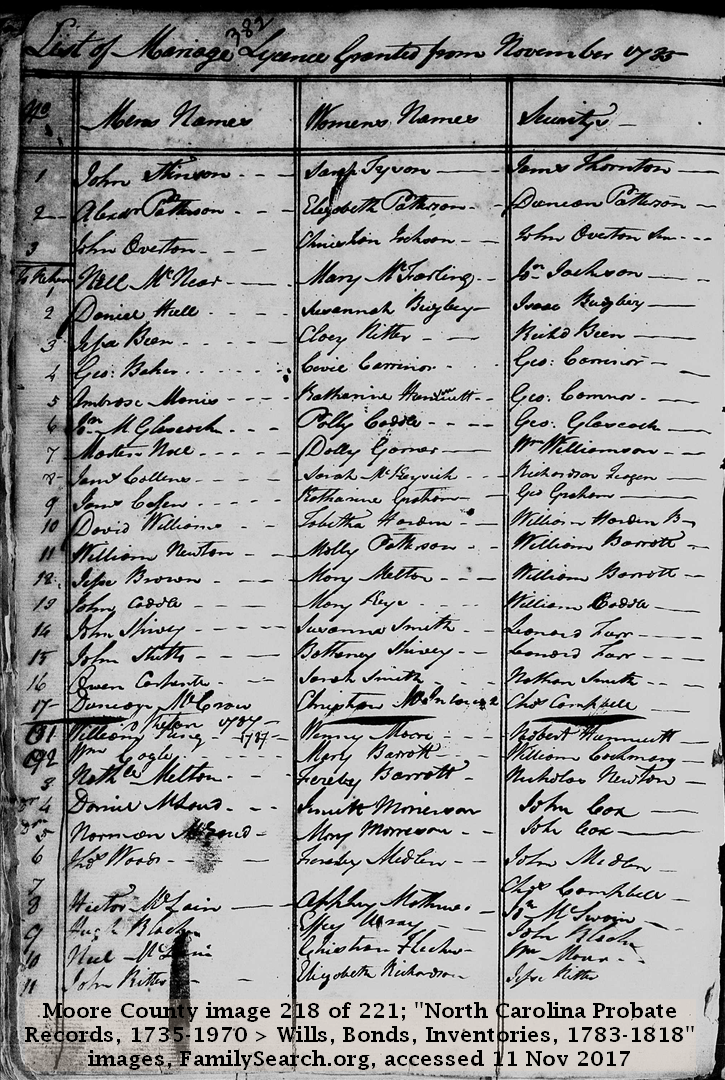 382
List of Mariage Lycence Granted from November 1785
No Mens Names Womens Names Security's
1 John Stinson Sarah Tyson James Thornton
2 Alexdr Patterson Elizabeth Patterson Duncan Patterson
3 John Overton Christian Jackson John Overton Senr
1 Nell McNear Mary McFarling Jno Jackson
2 Daniel Hill Susannah Bugbey Isaac Bugbey
3 Jesse Been Cloey Ritter Richd Been
4 Geo: Baker Carrinor Geo: Carrinor
5 Ambrose Katharine Geo:
6 Jno M Glascock Polly Caddle Geo: Glascock
7 Martin Noll Dolly Garner Wm Williamson
8 James Collens Sarah Richardson
9 James Katharine Graham Geo Graham
10 David Williams Tobitha Harden William Harden
11 William Newton Molly Patterson William Barrott
12 Jesse Brown Mary Melton William Barrott
13 John Caddle Mary Keys William Caddle
14 John Shivey Susanna Smith Leonard Farr
15 John Stutts Botheney Shivey Leonard Farr
16 Owen Sarah Smith Nathan Smith
17 Duncan McCraw Christian Chas Campbell
1 William King 1787 Wenny Moore Robert
2 Wm Mary Barrott William
3 Melton Fereby Barrott Nicholas Newton
4 Daniel McLeod Morrison John Cox
5 Norman McLeod Mary Morreson John Cox
6 Thos Woods Fereby Medlin John Medlin
7 Chas Campbell
8 Hector McLain Apphey Mathews Jno McSwain
9 Hugh Black Effey Wray John Black
10 Neil Christian Wm
11 John Ritter Elizabeth Richardson Jesse Ritter
Moore County image 218 of 221; "North Carolina Probate
Records, 1735-1970 > Wills, Bonds, Inventories, 1783-1818"
images, FamilySearch.org, accessed 11 Nov 2017